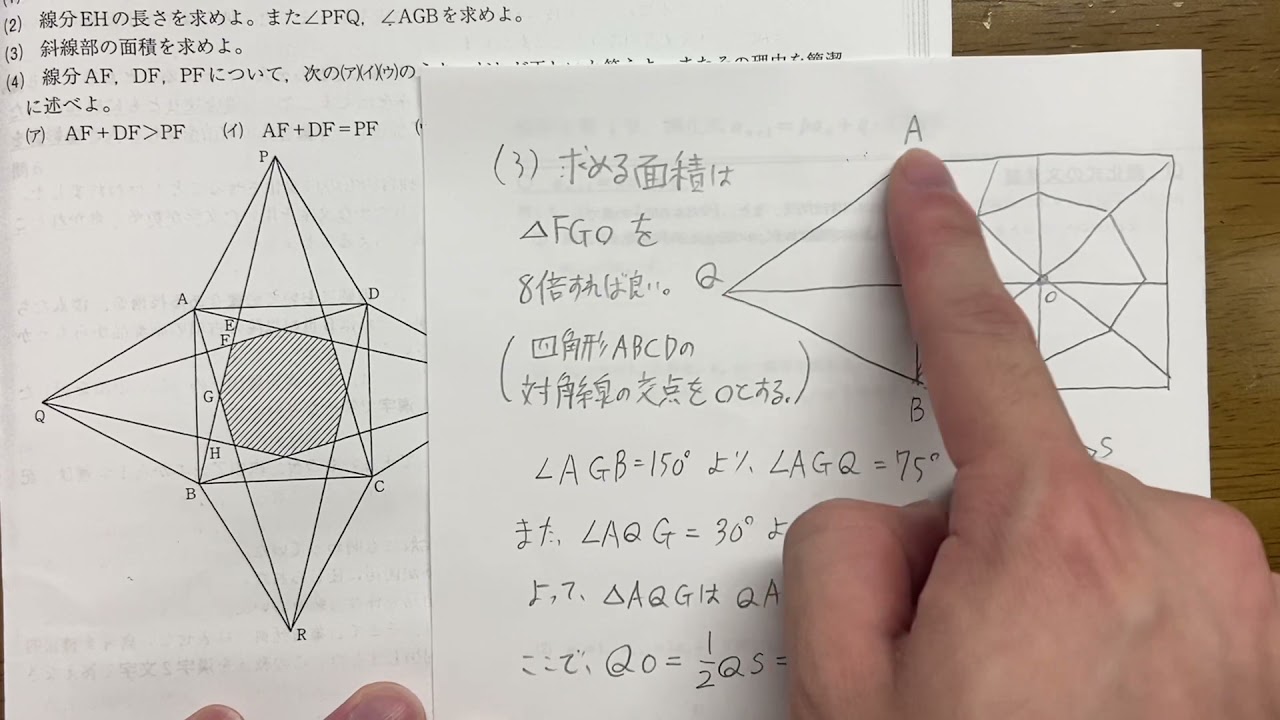 (2) 線分EHの長さを求めよ。また∠PFQ, ∠AGBを求めよ。
(3) 斜線部の面積を求めよ。
(4) 線分AF, DF, PFについて, 次の(ア)(イ)(ウ)の
に述べよ。
(ア) AF+DF>PF (イ) AF+DF=PF
P
A
D
E
F
Q
G
H
B
C
R
(3) 求める面積は
△FGOを
8倍すれば良い。
(四角形ABCDの
対角線の交点をOとする。)
∠AGB=150°より、∠AGQ=75°
また、∠AQG=30°よ
よって、△AQGはQA
ここで、QO=1/2QS=
A
Q
O
B
S